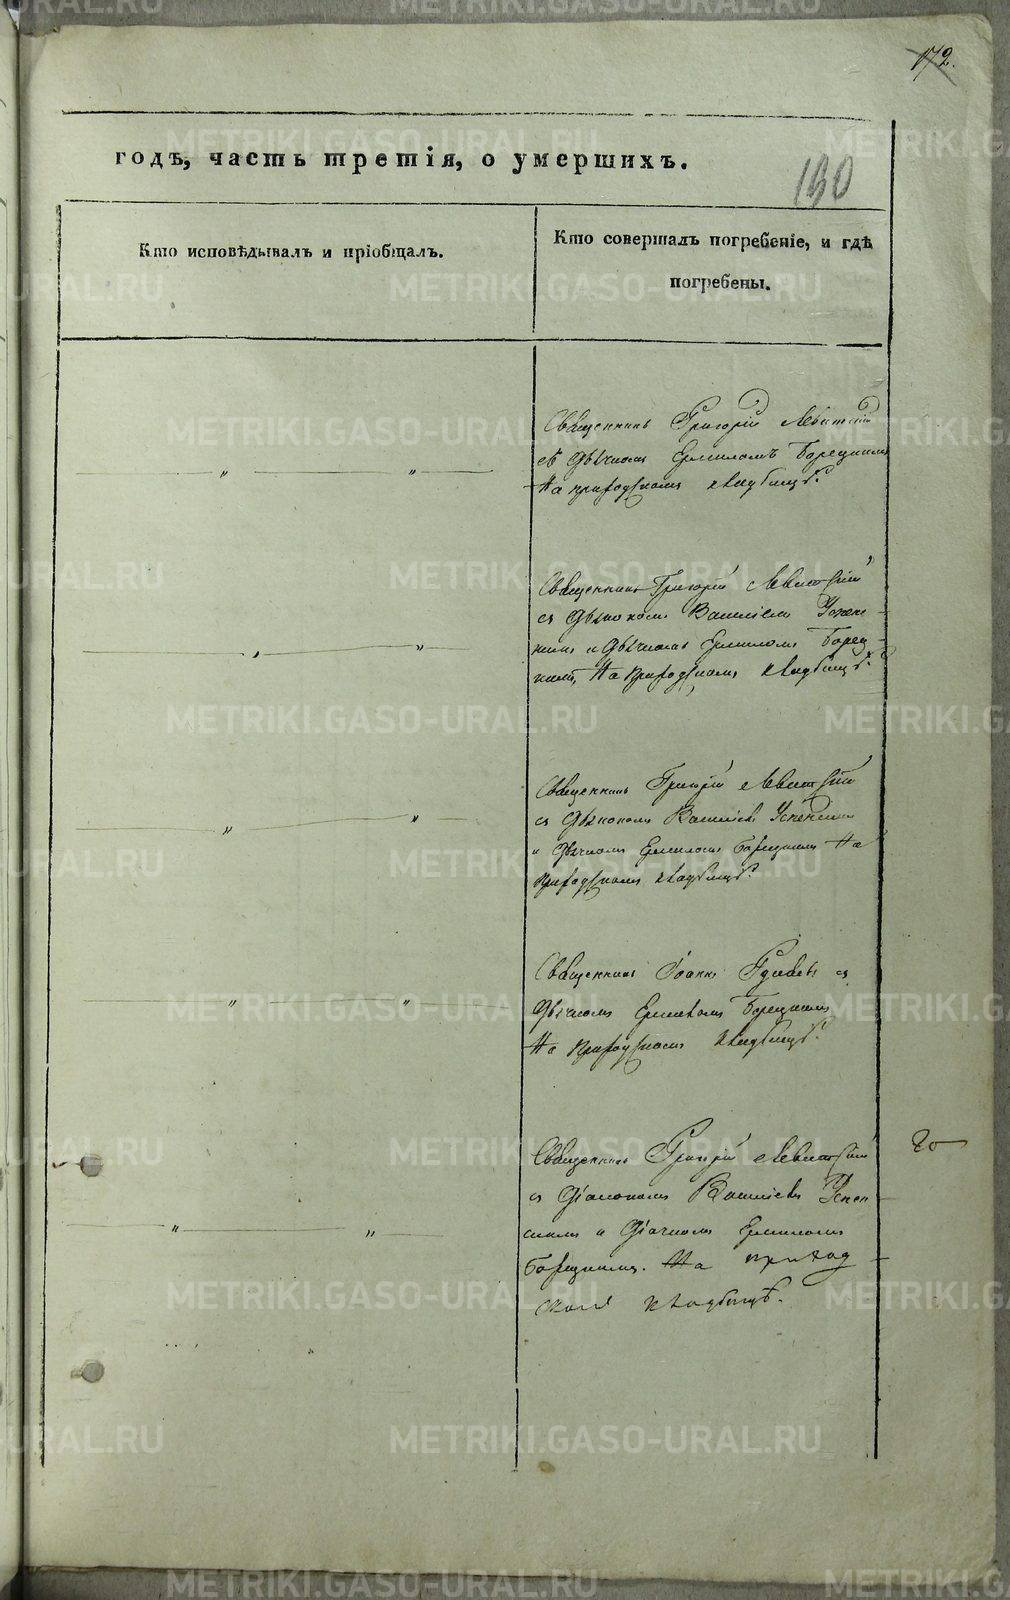 172.
годѣ, часть третія, о умершихъ.
190
Кто исповѣдывалъ и пріобщалъ.
Кто совершалъ погребеніе, и гдѣ
погребены.
Священникъ Григорій Левитскій
съ Дьячкомъ Ермиломъ Борецкимъ
На приходскомъ кладбищѣ.
Священникъ Григорій Левитскій
съ Дьякономъ Василіемъ Успен-
скимъ и Дьячкомъ Ермиломъ Борец-
кимъ, На Приходскомъ кладбищѣ.
Священникъ Григорій Левитскій
съ Дьякономъ Василіемъ Успенскимъ
и Дьячкомъ Ермиломъ Борецкимъ На
Приходскомъ кладбищѣ.
Священникъ Іоаннъ съ
Дьячкомъ Ермиломъ Борецкимъ
На Приходскомъ кладбищѣ.
Священникъ Григорій Левитскій
съ Діакономъ Василіемъ Успен-
скимъ и Діячкомъ Ермиломъ
Борецкимъ. На приход-
скомъ кладбищѣ.
METRIKI.GASO-URAL.RU